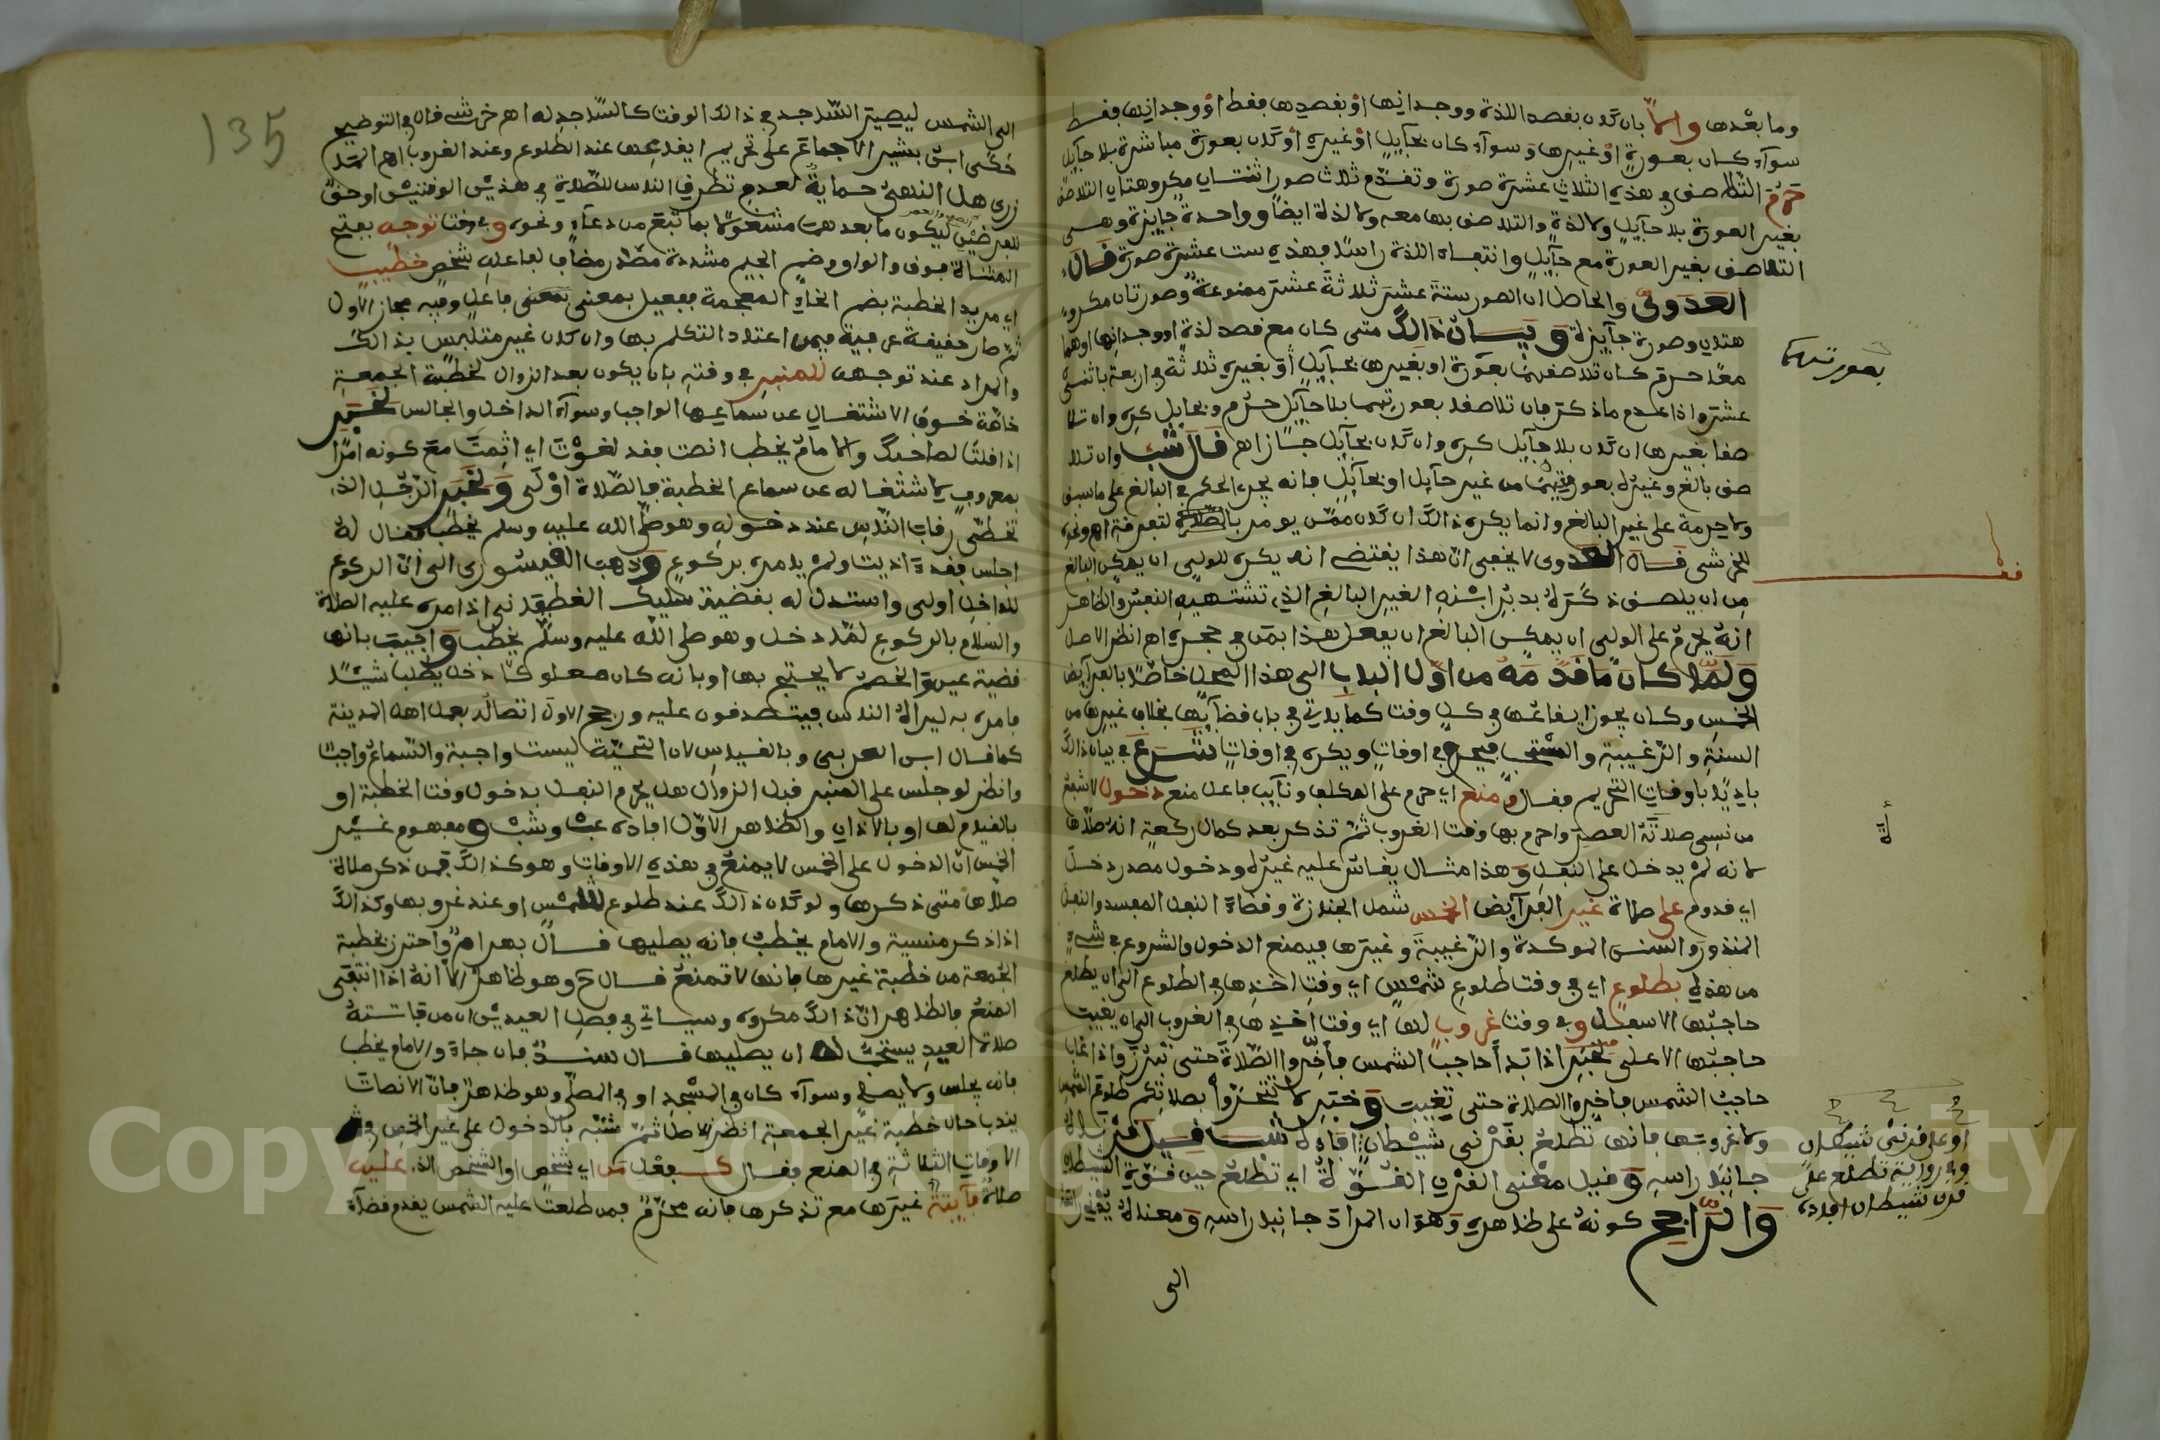 وما بعدها والا بان كان بقصد اللذة ووجدانها او بقصدها فقط او وجدانها فقط
سوآء كان بعورة او غيرها وسوآء كان بحآيل او غيره او كان بعورة مباشرة بلا حآيل
حرم التلاصق في هذه الثلاث عشرة صورة وتقدم ثلاث صور اثنتان مكروهتان التلاصق
بغير العورة بلا حآيل ولا لذة والتلاصق بها معه ولا لذة ايضا وواحدة جايزة وهي
التلاصق بغير العورة مع حآيل وانتفاء اللذة راسا فهذه ست عشرة صورة قال
العدوي والحاصل ان الصور ستة عشر ثلاثة عشر ممنوعة وصورتان مكرو
هتان وصورة جآيزة وبيان ذالك متى كان مع قصد لذة او وجدانها او هما
معا حرم كان تلاصقهما بعورة او بغيرها بحآيل او بغيره ثلاثة في اربعة باثنى
عشر واذا عدم ما ذكر فان تلاصقا بعورتيهما بلا حآيل حرم وبحايل كره وان تلا
صقا بغيرها ان كان بلا حآيل كره وان كان بحآيل جاز اهر قال شب وان تلا
صق بالغ وغيره بعورتيهما من غير حآيل او بحآيل فانه يجري الحكم في البالغ على ما سبق
ولا حرمة على غير البالغ وانما يكره ذالك ان كان ممن يومر بالصلاة لتفرقة اهر ونحوه
للخرشي قال العدوى لا يخفى ان هذا يقتضي انه يكره للولي ان يمكن البالغ
من ان يلصق ذكره بدبر ابنه الغير البالغ الذي تشتهيه النفس والظاهر
انه يحرم على الولي ان يمكن البالغ ان يفعل هذا بمن في حجره اهر انظر الاصل
ولما كان ما قدمه من اول الباب الى هذا المحل خاصا بالفرآيض
الخمس وكان يجوز ايقاعها في كل وقت كما ياتي في باب قضآيها بخلاف غيرها من
السنة والرغيبة والمستحب فيحرم في اوقات ويكره في اوقات شرع في بيان ذالك
باديا باوقات التحريم فقال ومنع اي حرم على المكلف ونآيب فاعل منع دخول لا شفع
من نسي صلاته العصر واحرم بها وقت الغروب ثم تذكر بعد كمال ركعة انه صلاها
لانه لم يدخل على النفل وهذا مثال يقاس عليه غيره ودخول مصدر دخل
اي قدوم على صلاة غير الفرآيض الخمس شمل الجنازة وقضاء النفل المفسد والنفل
المنذور والسنن الموكدة والرغيبة وغيرها فيمنع الدخول والشروع في شيء
من هذه بطلوع اي في وقت طلوع شمس اي وقت اخذها في الطلوع الى ان يطلع
حاجبها الاسفل وفي وقت غروب لها اي وقت اخذها في الغروب الى ان يغيب
حاجبها الاعلى لخبر اذا بدأ حاجب الشمس فأخروا الصلاة حتى تبرز واذا غاب
حاجب الشمس فاخروا الصلاة حتى تغيب وخبر لا تتحروا بصلاتكم طلوع الشمس
ولا غروبها فانها تطلع بقرني شيطان افاده شب قيل قرناه
جانبا راسه وقيل معنى القرن القوة اي تطلع حين قوة الشيطان
والراجح كونه على ظاهره وهو ان المراد جانبا راسه ومعناه
الى
بعورتيهما
قف
او على قرني شيطان
وفي رواية تطلع على
قرن شيطان افاده
135
الى الشمس ليصير الساجد في ذالك الوقت كالساجد له اهر خرشي قال في التوضيح
حكى ابن بشير الاجماع على تحريم ايقاعها عند الطلوع وعند الغروب اهر الما
زري هل النهي حماية لعدم تطرق الناس للصلاة في هذين الوقتين او حق
للفرضين ليكون ما بعدهما مشغولا بما تبع من دعآء ونحوه وفي وقت توجه بفتح
المثناة فوق والواو وضم الجيم مشددة مصدر مضاف لفاعله شخص خطيب
اي مريد الخطبة بضم الخآء المعجمة ففعيل بمعنى فاعل وفيه مجاز الاول
ثم صار حقيقة عرفية فيمن اعتاد التكلم بها وان كان غير متلبس بذالك
والمراد عند توجهه للمنبر في وقته بان يكون بعد الزوال لخطبة الجمعة
خاصة خوف الاشتغال عن سماعها الواجب وسوآء الداخل والجالس لخبر
اذا قلت لصاحبك والامام يخطب انصت فقد لغوت اي اثمت مع كونه امرا
بمعروف فاشتغاله عن سماع الخطبة بالصلاة اولى ولخبر الرجل الذي
تخطى رقاب الناس عند دخوله وهو صلى الله عليه وسلم يخطب فقال له
اجلس فقد آذيت ولم يامره بركوع وذهب الفيشوري الى ان الركوع
للداخل اولى واستدل له بقضية سليك الغطفاني اذ امره عليه الصلاة
والسلام بالركوع لما دخل وهو صلى الله عليه وسلم يخطب واجيب بانها
قضية عين والخصم لا يحتج بها او بانه كان صعلوكا دخل يطلب شيئا
فامره به ليراه الناس فيتصدقون عليه ورجح الاول اتصاله بعمل اهل المدينة
كما قال ابن العربي وبالقياس لان التحية ليست واجبة والسماع واجب
وانظر لو جلس على المنبر قبل الزوال هل يحرم النفل بدخول وقت الخطبة او
بالقيام لها او بالاذان والظاهر الاول افاده عب وشب ومفهوم غير
الخمس ان الدخول على الخمس لا يمنع في هذه الاوقات وهو كذالك فمن ذكر صلاة
صلاها متى ذكرها ولو كان ذالك عند طلوع الشمس او عند غروبها وكذالك
اذا ذكر منسية والامام يخطب فانه يصليها قال بهرام واحترز بخطبة
الجمعة من خطبة غيرها فانها لا تمنع قال ح وهو ظاهر الا انه اذا انتفى
المنع فالظاهر ان ذالك مكروه وسياتي في فصل العيدين ان من فاتته
صلاة العيد يستحب له ان يصليها قال سند فان جآء والامام يخطب
فانه يجلس ولا يصلي وسوآء كان في المسجد او في المصلى وهو ظاهر فان الانصات
يندب احال خطبة غير الجمعة انظر الاصل ثم شبه بالدخول على غير الخمس
الاوقات الثلاثة في المنع فقال كـفعل من اي شخص او الشخص الذي عليه
صلاة فآيتة غيرها مع تذكرها فانه محرم فمن طلعت عليه الشمس يقدم قضآء